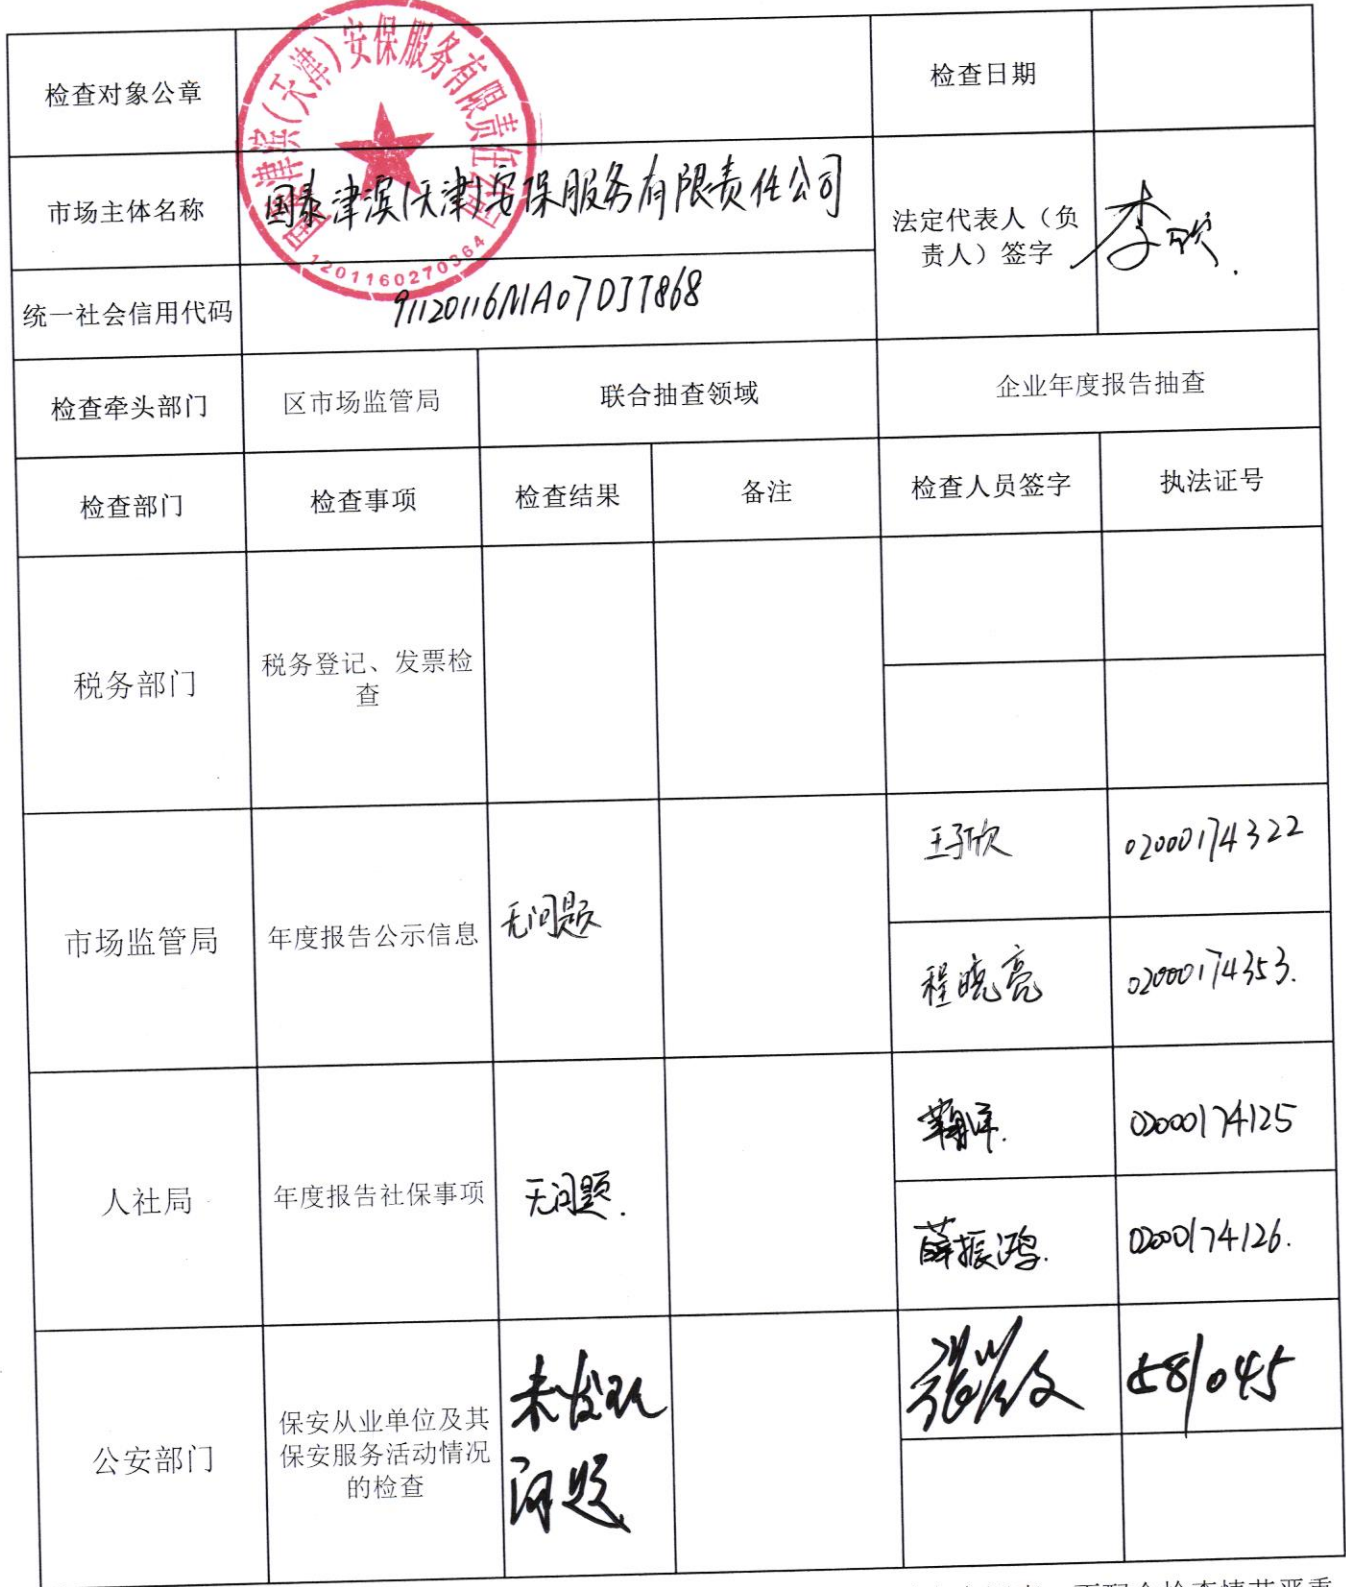 检查对象公章
国泰津滨(天津)安保服务有限责任公司
1201160270364
检查日期
市场主体名称
国泰津滨(天津)安保服务有限责任公司
法定代表人（负
责人）签字
李欣.
统一社会信用代码
91120116MA07DJT868
检查牵头部门
区市场监管局
联合抽查领域
企业年度报告抽查
检查部门
检查事项
检查结果
备注
检查人员签字
执法证号
税务部门
税务登记、发票检
查
市场监管局
年度报告公示信息
无问题
王子欣
02000174322
程晓亮
02000174353.
人社局
年度报告社保事项
无问题.
02000174125
薛振鸿.
02000174126.
公安部门
保安从业单位及其
保安服务活动情况
的检查
未发现
问题
581045